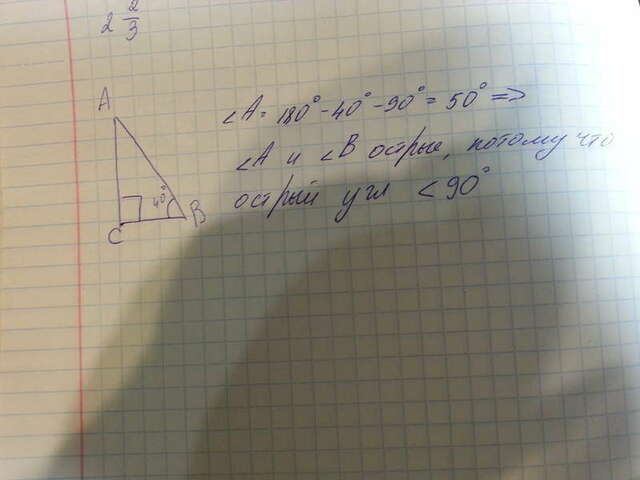 2 2/3
A
∠A = 180° - 40° - 90° = 50° =>
∠A и ∠B острые, потому что
острый угл < 90°
40°
B
C